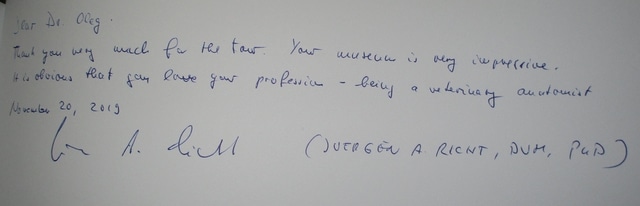 Dear Dr. Oleg.
Thank you very much for the tour. Your museum is very impressive.
It is obvious that you love your profession - being a veterinary anatomist
November 20, 2019
A. (JUERGEN A. RICHT, DVM, PhD)